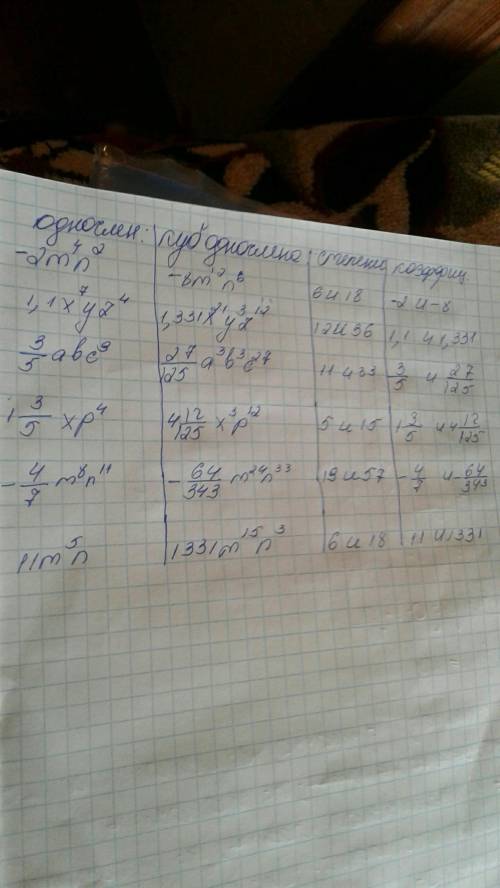 одночлен: куб одночлена степень коэффиц.
-2m⁴n² -8m¹²n⁶ 6 и 18 -2 и -8
1,1x⁷yz⁴ 1,331x²¹y³z¹² 12 и 36 1,1 и 1,331
3/5 abc⁹ 27/125 a³b³c²⁷ 11 и 33 3/5 и 27/125
1 3/5 xp⁴ 4 12/125 x³p¹² 5 и 15 1 3/5 и 4 12/125
-4/7 m⁸n¹¹ -64/343 m²⁴n³³ 19 и 57 -4/7 и -64/343
11m⁵n 1331m¹⁵n³ 6 и 18 11 и 1331